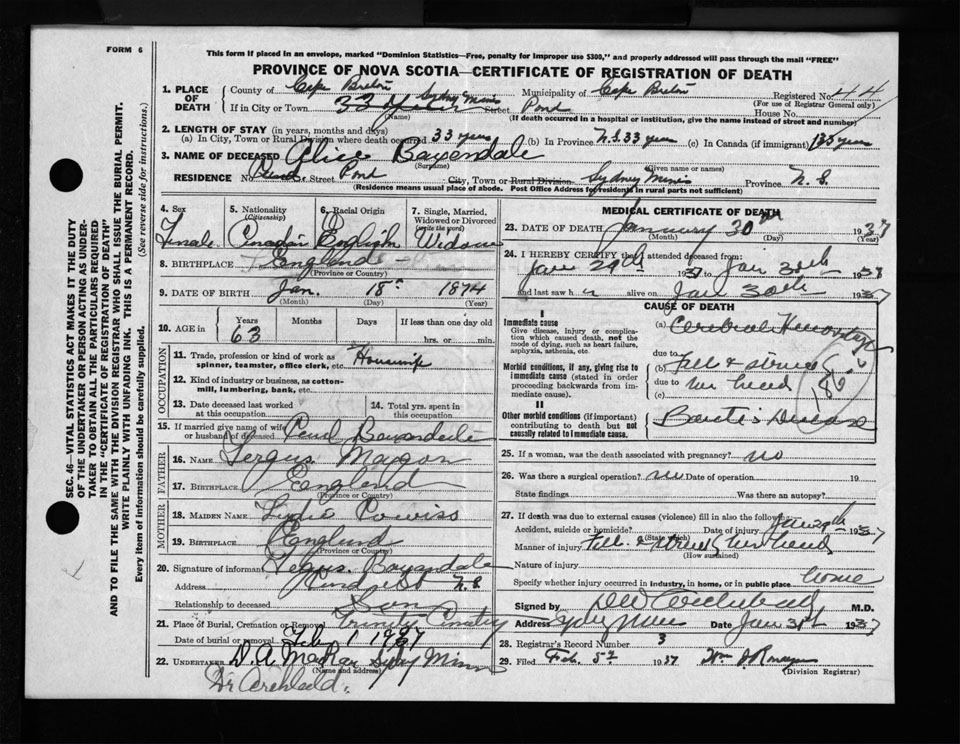 FORM 6
This form if placed in an envelope, marked "Dominion Statistics—Free, penalty for improper use $300," and properly addressed will pass through the mail "FREE"
PROVINCE OF NOVA SCOTIA—CERTIFICATE OF REGISTRATION OF DEATH
1. PLACE OF DEATH
County of Cape Breton Municipality of Cape Breton Registered No. 44
(For use of Registrar General only)
If in City or Town 33 Sydney Mines Street Pond House No.
(Name)
(If death occurred in a hospital or institution, give the name instead of street and number)
2. LENGTH OF STAY (in years, months and days)
(a) In City, Town or Rural Division where death occurred 33 years (b) In Province N.S. 33 years (c) In Canada (if immigrant) 33 years
3. NAME OF DECEASED Alice Baxendale
(Surname) (Given name or names)
RESIDENCE No. Street Pond City, Town or Rural Division Sydney Mines Province N. S.
(Residence means usual place of abode. Post Office Address for residents in rural parts not sufficient)
4. Sex
Female
5. Nationality (Citizenship)
Canadian
6. Racial Origin
English
7. Single, Married, Widowed or Divorced (write the word)
Widow
8. BIRTHPLACE England
(Province or Country)
9. DATE OF BIRTH Jan. 18 1874
(Month) (Day) (Year)
10. AGE in Years Months Days If less than one day old
63 hrs. or min.
OCCUPATION
11. Trade, profession or kind of work as spinner, teamster, office clerk, etc. Housewife
12. Kind of industry or business, as cotton-mill, lumbering, bank, etc.
13. Date deceased last worked at this occupation
14. Total yrs. spent in this occupation
15. If married give name of wife or husband of deceased Baxendale
FATHER
16. NAME Fergus
17. BIRTHPLACE England
(Province or Country)
MOTHER
18. MAIDEN NAME Lydia
19. BIRTHPLACE England
(Province or Country)
20. Signature of informant Fergus Baxendale
Address N. S.
Relationship to deceased Son
21. Place of Burial, Cremation or Removal Trinity Cemetery
Date of burial or removal Feb 1 1937
22. UNDERTAKER D. A. MacRae Sydney Mines
(Name and address)
Dr Archibald.
MEDICAL CERTIFICATE OF DEATH
23. DATE OF DEATH January 30th 1937
(Month) (Day) (Year)
24. I HEREBY CERTIFY that I attended deceased from:
Jan 29th 1937 to Jan 30th 1937
and last saw h alive on Jan 30th 1937
CAUSE OF DEATH
I
Immediate cause
Give disease, injury or complication which caused death, not the mode of dying, such as heart failure, asphyxia, asthenia, etc.
Morbid conditions, if any, giving rise to immediate cause (stated in order proceeding backwards from immediate cause).
II
Other morbid conditions (if important) contributing to death but not causally related to immediate cause.
(a) Cerebral Hemorrhage
due to
(b) Fell & struck
due to her head
(c)
25. If a woman, was the death associated with pregnancy? no
26. Was there a surgical operation? no Date of operation 19
State findings Was there an autopsy?
27. If death was due to external causes (violence) fill in also the following:
Accident, suicide or homicide? Date of injury 1937
(State which)
Manner of injury Fell & struck her head
(How sustained)
Nature of injury
Specify whether injury occurred in industry, in home, or in public place home
Signed by M.D.
Address Sydney Mines Date Jan 31st 1937
28. Registrar's Record Number 3
29. Filed Feb. 5 1937
(Division Registrar)
SEC. 46—VITAL STATISTICS ACT MAKES IT THE DUTY
OF THE UNDERTAKER OR PERSON ACTING AS UNDERTAKER TO OBTAIN ALL THE PARTICULARS REQUIRED
IN THE "CERTIFICATE OF REGISTRATION OF DEATH"
AND TO FILE THE SAME WITH THE DIVISION REGISTRAR WHO SHALL ISSUE THE BURIAL PERMIT.
WRITE PLAINLY WITH UNFADING INK. THIS IS A PERMANENT RECORD.
Every item of information should be carefully supplied. (See reverse side for instructions.)